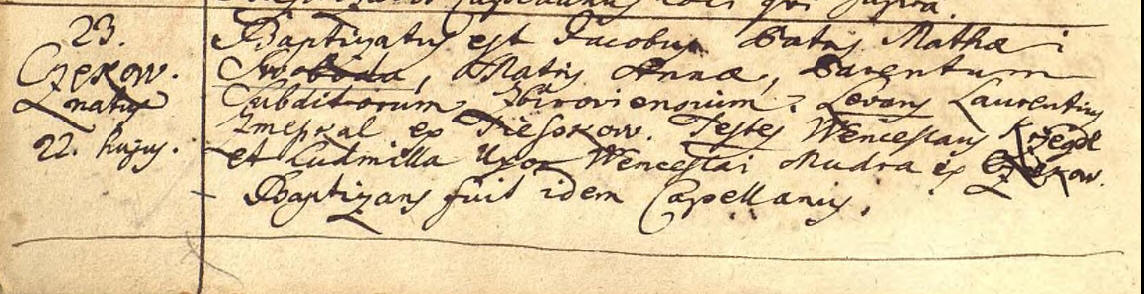 Capellanus loci qui supra.
23.
Czekow.
natus
22. hujus.
Baptizatus est Jacobus Patris Mathæi
Swoboda, Matris Annæ, Parentum
Subditorum Zbiroviensium. Levans Laurentius
ex Tiesskow. Testes Wenceslaus
et Ludmilla Uxor Wenceslai Mudra ex Czekow.
Baptizans fuit idem Capellanus.